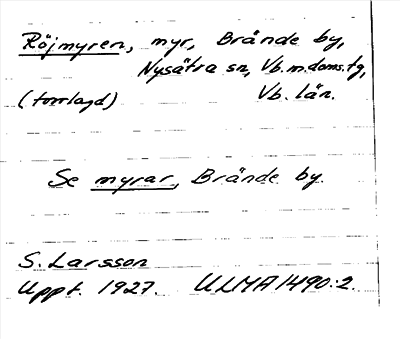 Röjmyren, myr, Brände by,
Nysätra sn, Vb.m.doms.tg,
(torrlagd) Vb. län.
Se myrar, Brände by.
S. Larsson
Uppt. 1927. ULMA 1490:2.